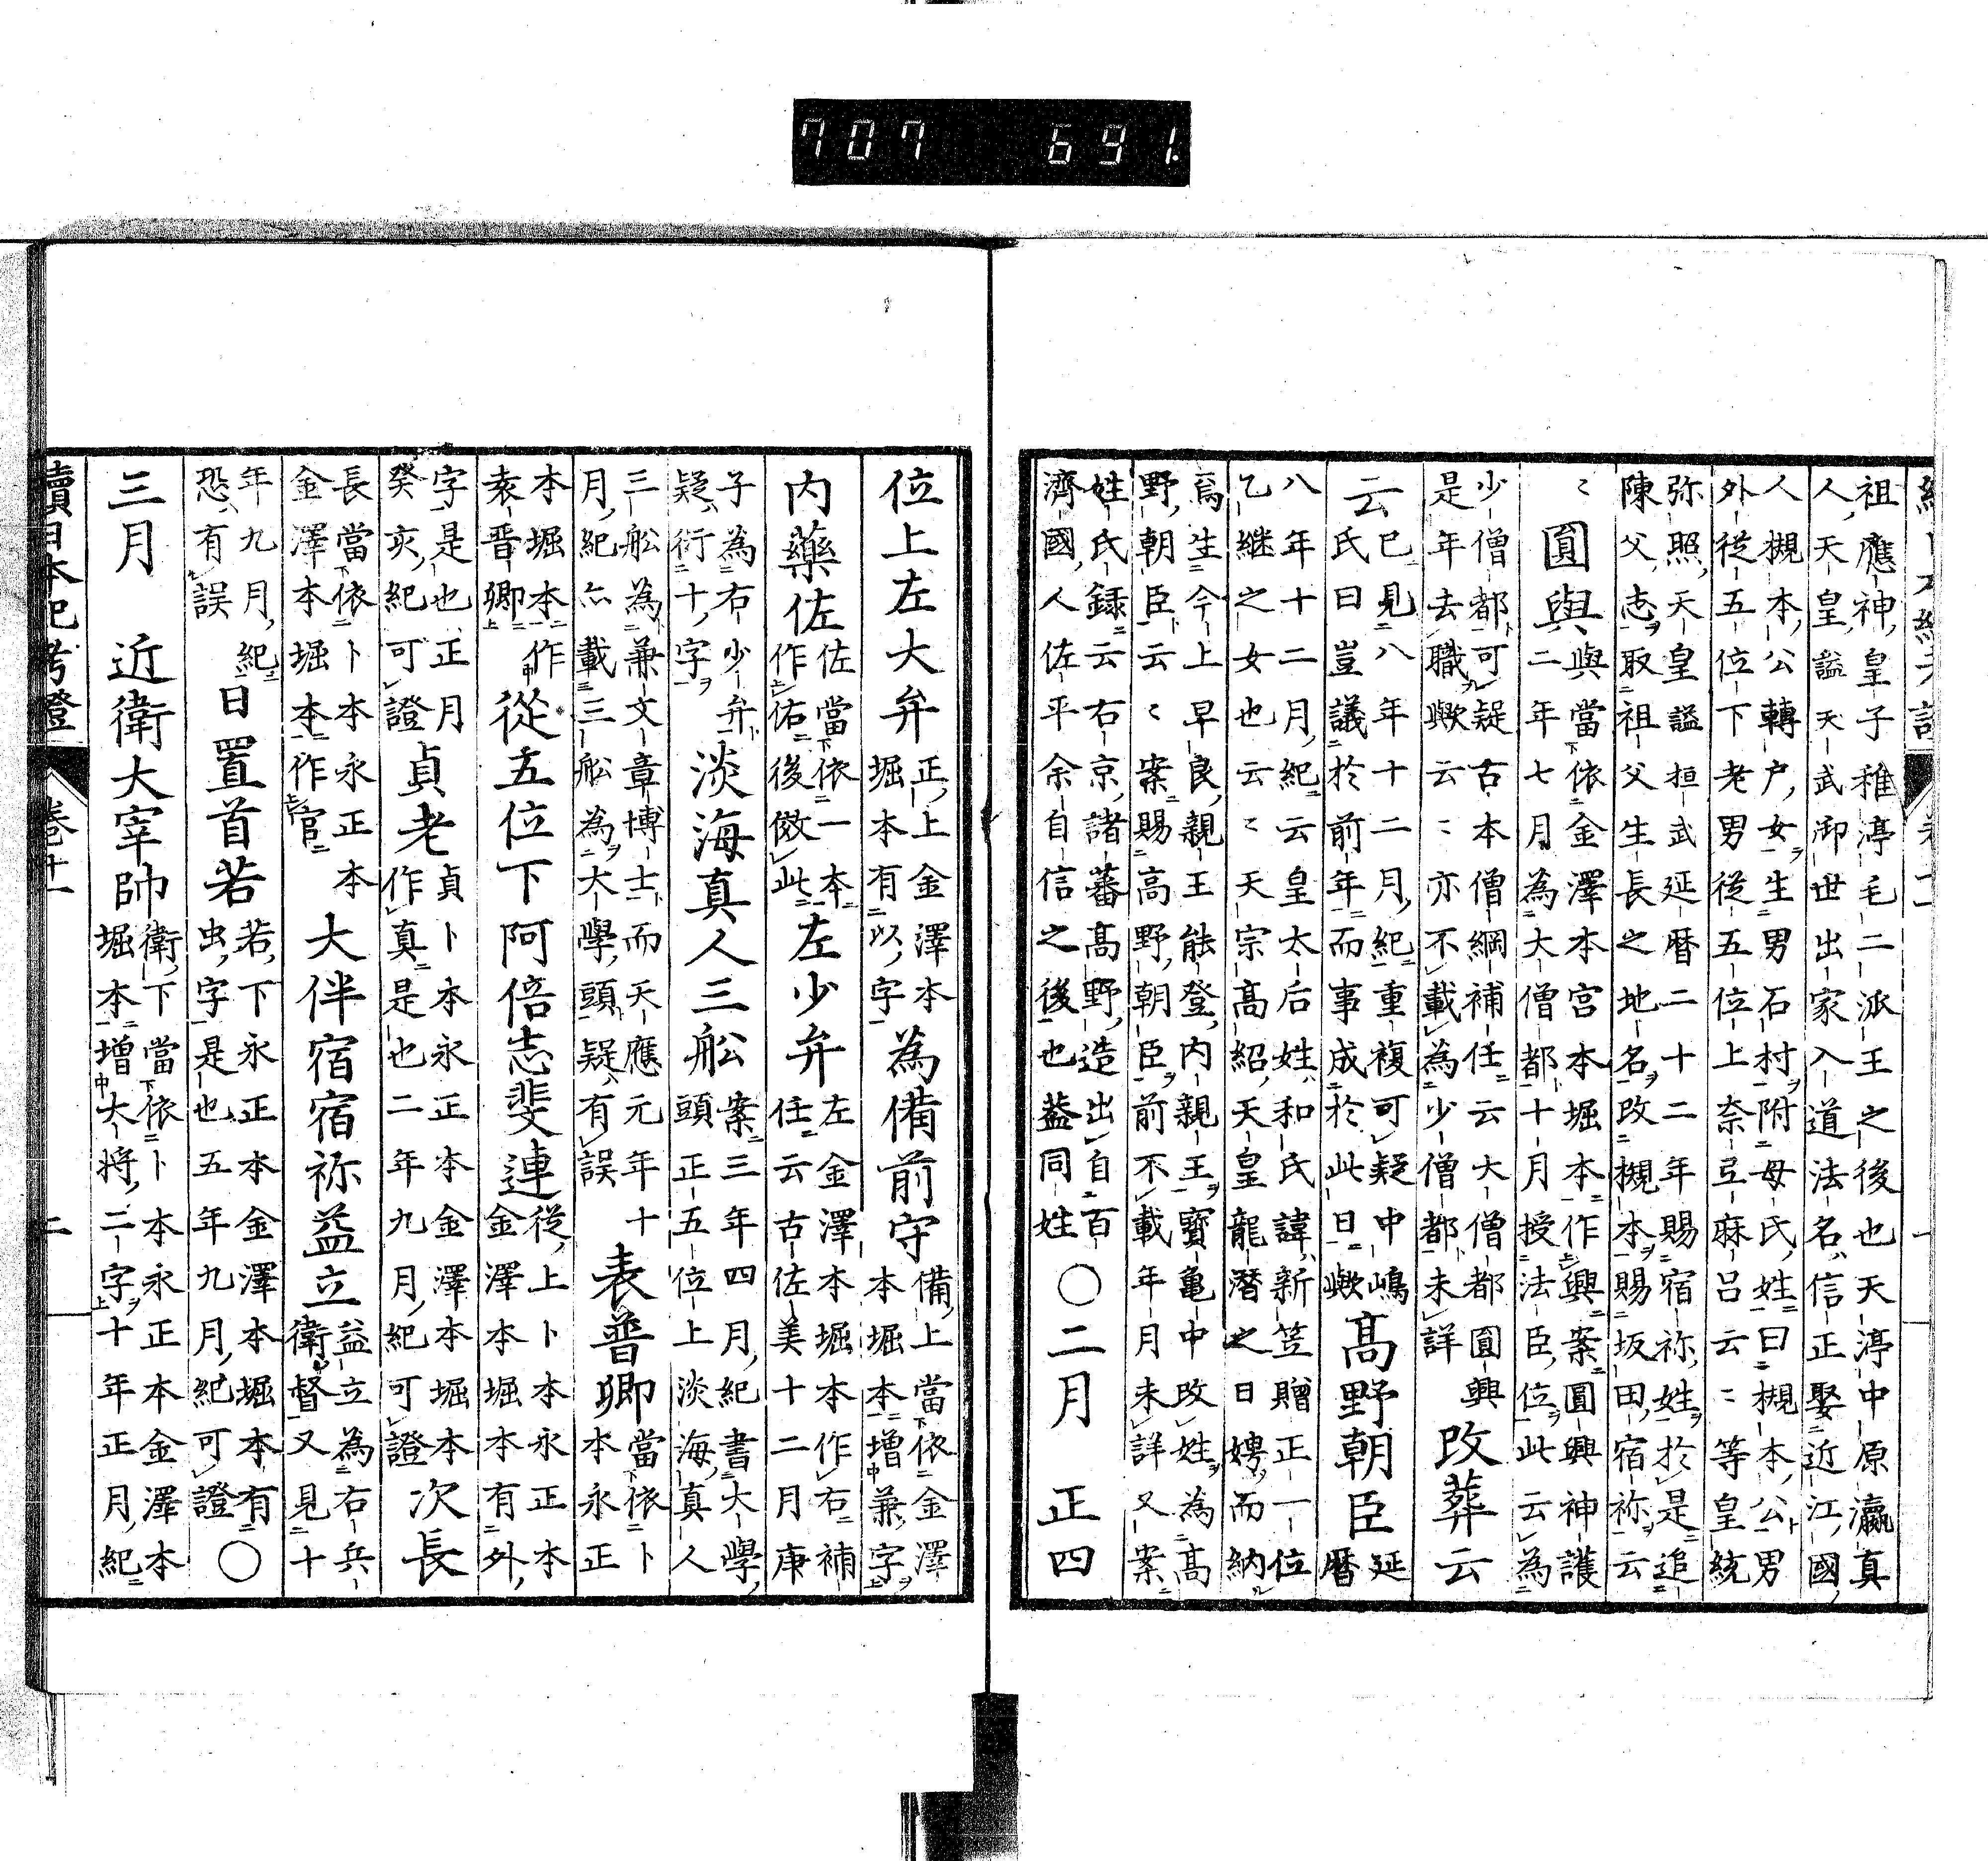 707 691.
祖應神皇子稚渟毛二派王之後也天渟中原瀛真
人天皇謚天武御世出家入道法名信正娶近江國
人槻本公轉戸女生男石村附母氏姓曰槻本公男
外従五位下老男従五位上奈弖麻呂云〻等皇統
弥照天皇謚桓武延暦二十二年賜宿祢姓於是追
陳父志取祖父生長之地名改槻本賜坂田宿祢云
〻 圓與 與當依金澤本宮本堀本作興案圓興神護
二年七月為大僧都十月授法臣位此云為
少僧都可疑古本僧綱補任云大僧都圓興
是年去職歟云〻亦不載為少僧都未詳 改葬云
云 已見八年十二月紀重複可疑中嶋
氏曰豈議於前年而事成於此日歟 髙野朝臣 延
暦
八年十二月紀云皇太后姓和氏諱新笠贈正一位
乙継之女也云〻天宗髙紹天皇龍潜之日娉而納
焉生今上早良親王能登内親王寶亀中改姓為髙
野朝臣云〻案賜高野朝臣前不載年月未詳又案
姓氏録云右京諸蕃髙野造出自百
濟國人佐平余自信之後也蓋同姓 〇二月 正四
位上左大弁 正上金澤本
堀本有以字 為備前守 備上當依金澤
本堀本増兼字
内藥佐 佐當依一本
作佑後倣此 左少弁 左金澤本堀本作右補
任云古佐美十二月庚
子為右少弁
疑衍十字 淡海真人三舩 案三年四月紀書大學
頭正五位上淡海真人
三舩為兼文章博士而天應元年十
月紀亦載三舩為大學頭疑有誤 表普卿 當依卜
本永正
本堀本作
袁晋卿 從五位下阿倍志斐連 從上卜本永正本
金澤本堀本有外
字是也正月
癸亥紀可證 貞老 貞卜本永正本金澤本堀本
作真是也二年九月紀可證 次長
長當依卜本永正本
金澤本堀本作官 大伴宿宿祢益立 益立為右兵
衛督又見十
年九月紀
恐有誤 日置首若 若下永正本金澤本堀本有
虫字是也五年九月紀可證 〇
三月 近衛大宰帥 衛下當依卜本永正本金澤本
堀本増大将二字十年正月紀
續日本紀考證 卷十一 二